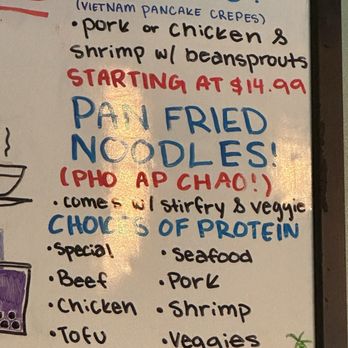 (VIETNAM PANCAKE CREPES)
• pork or chicken &
shrimp w/ beansprouts
STARTING AT $14.99
PAN FRIED
NOODLES!
(PHO AP CHAO!)
• comes w/ stirfry & veggie
CHOICES OF PROTEIN
• Special • Seafood
• Beef • Pork
• Chicken • Shrimp
• Tofu • Veggies